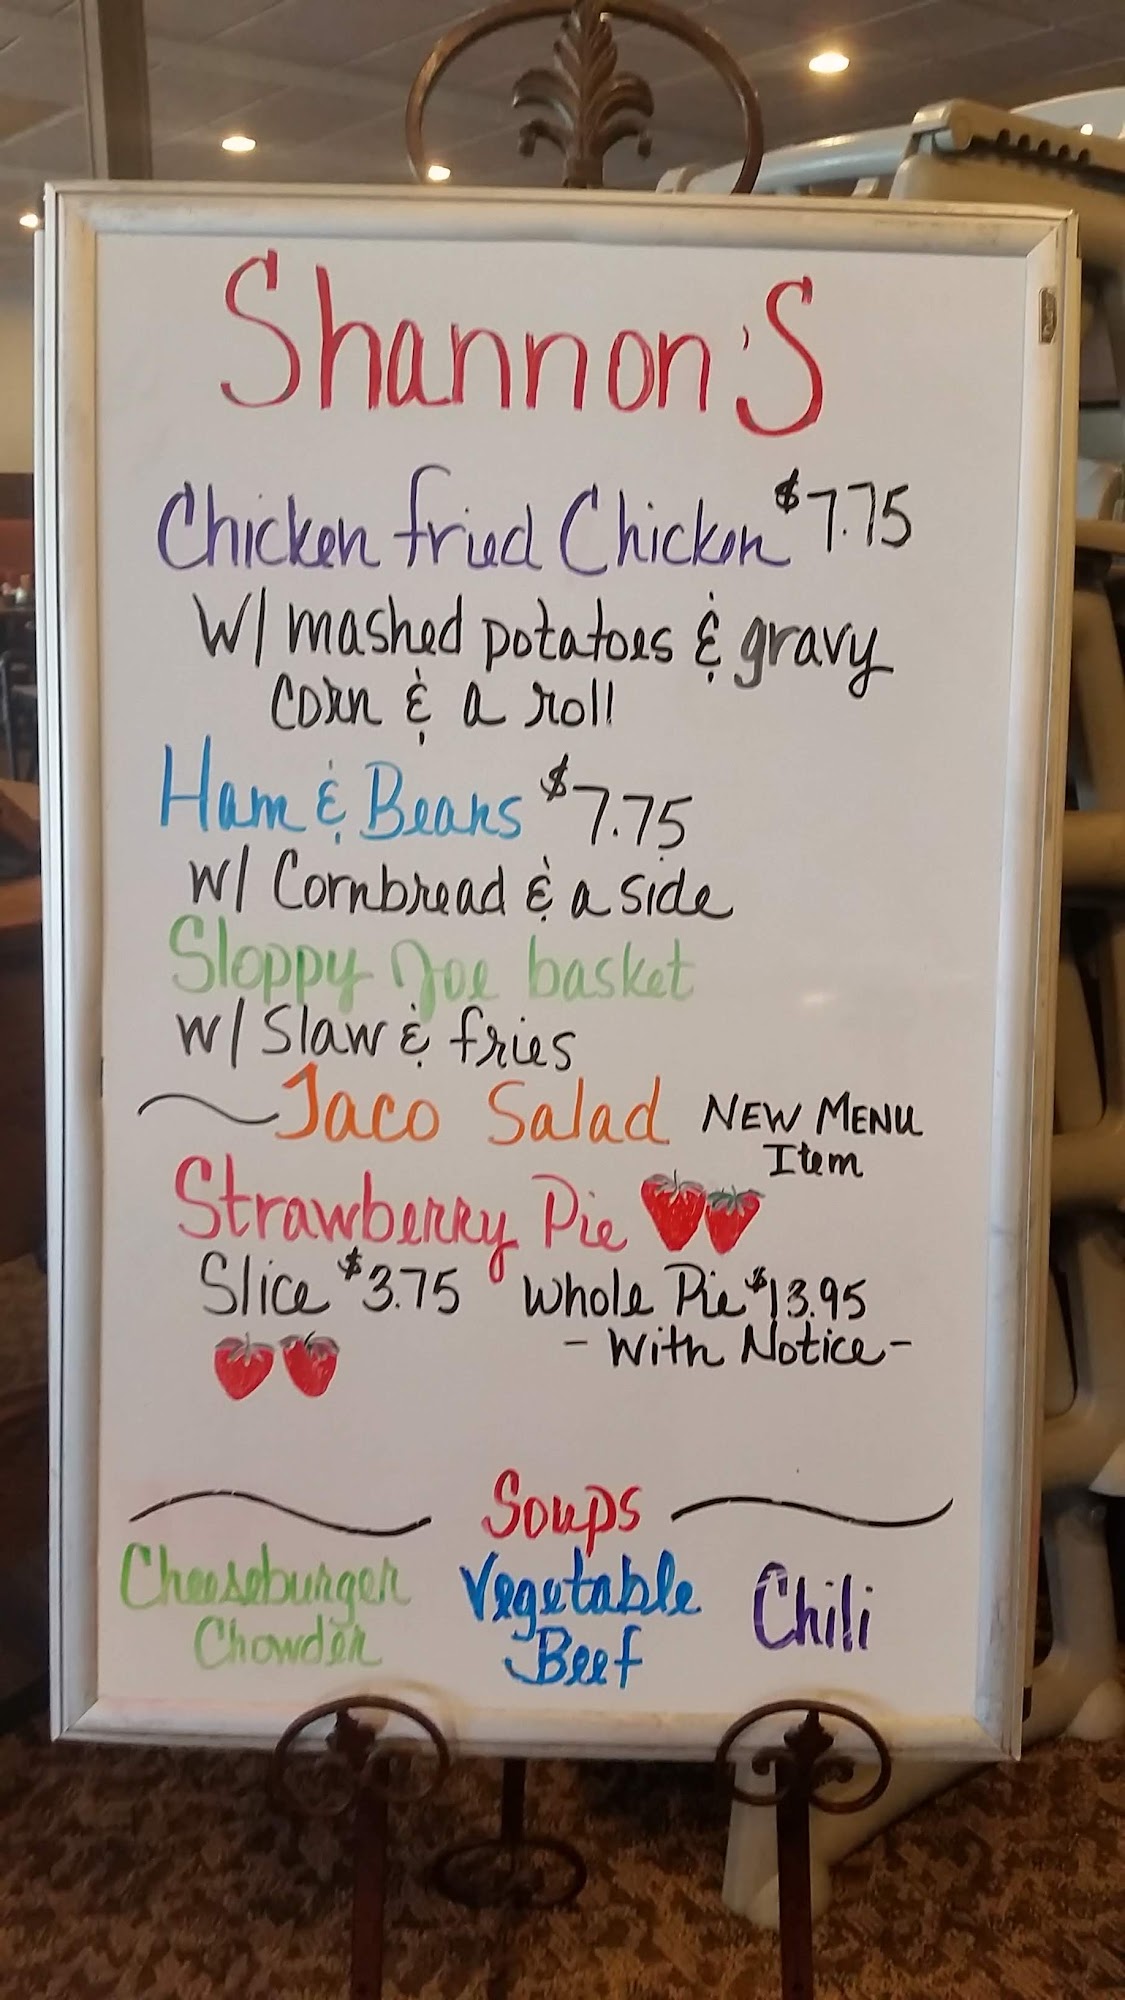 Shannon's
Chicken fried Chicken $7.75
W/ mashed potatoes & gravy
Corn & a roll
Ham & Beans $7.75
w/ Cornbread & a side
Sloppy Joe basket
w/ Slaw & fries
Taco Salad NEW MENU
Item
Strawberry Pie
Slice $3.75 Whole Pie $13.95
- With Notice -
Soups
Cheeseburger Vegetable Chili
Chowder Beef